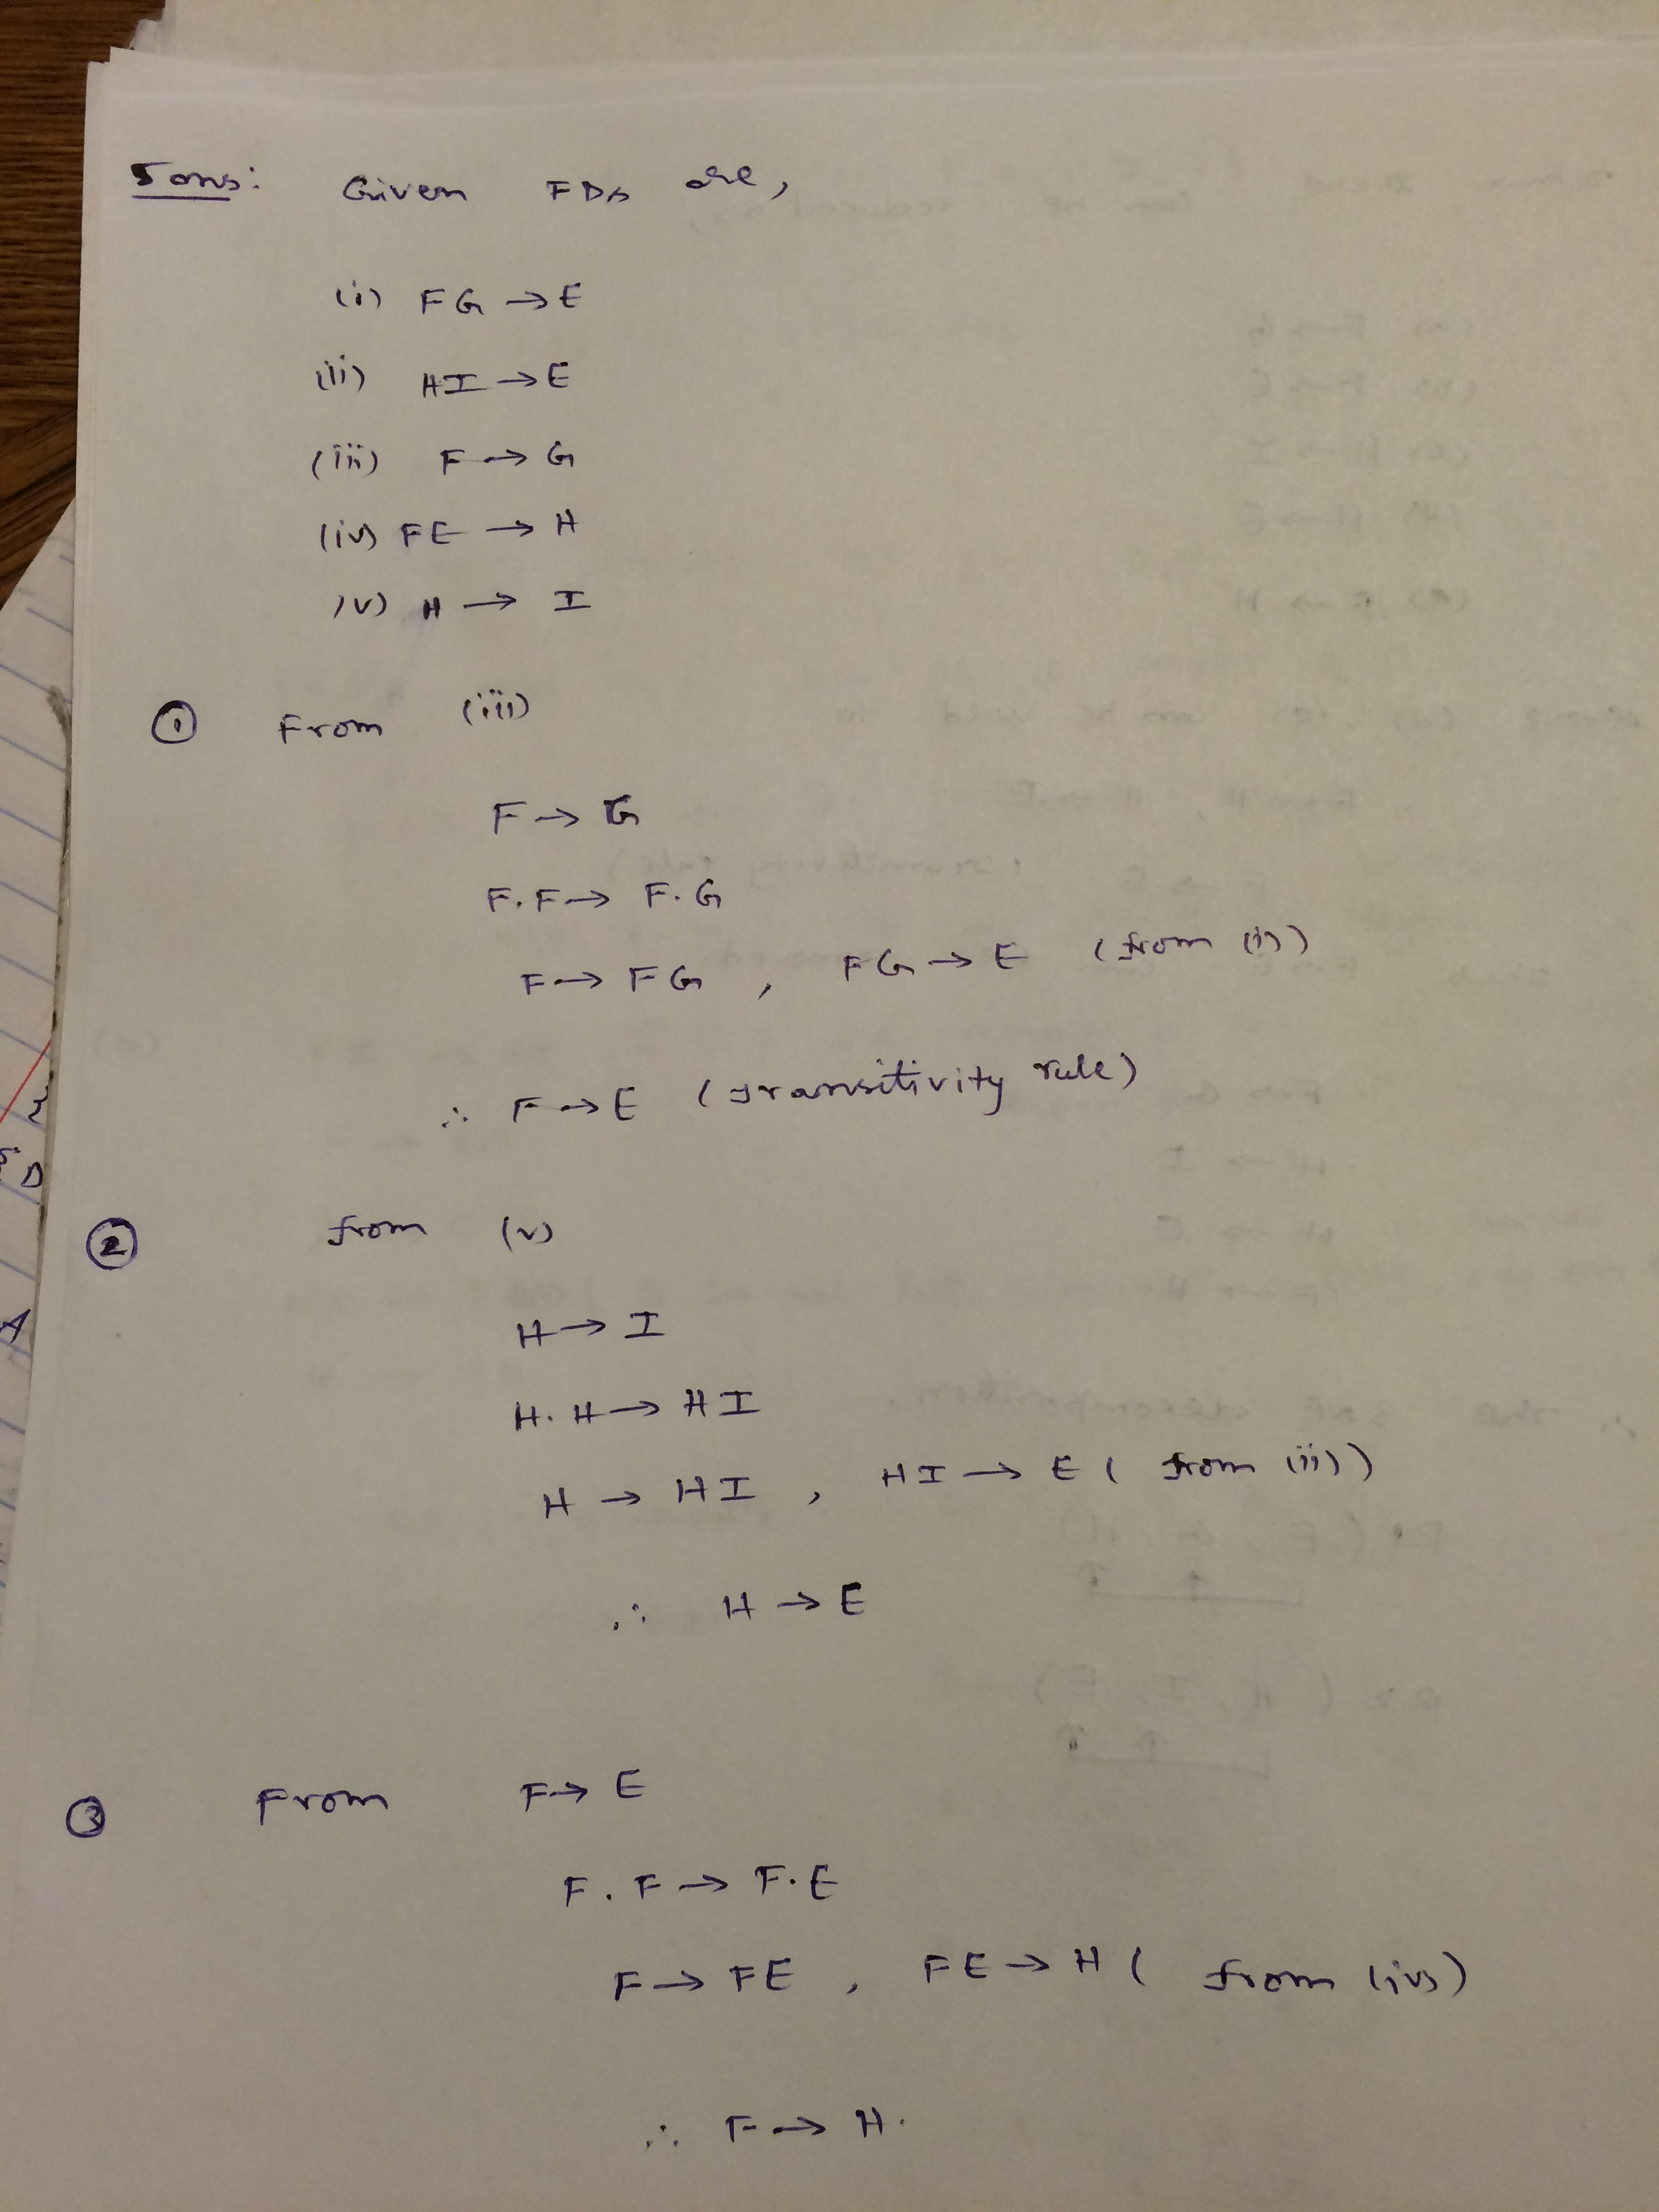 5 ans: Given FDs are,
(i) FG → E
(ii) HI → E
(iii) F → G
(iv) FE → H
(v) H → I
① From (iii)
F → G
F.F → F.G
F → FG , FG → E (from (i))
∴ F → E (transitivity rule)
② from (v)
H → I
H.H → HI
H → HI , HI → E ( from (ii))
∴ H → E
③ From F → E
F.F → F.E
F → FE , FE → H ( from (iv))
∴ F → H.